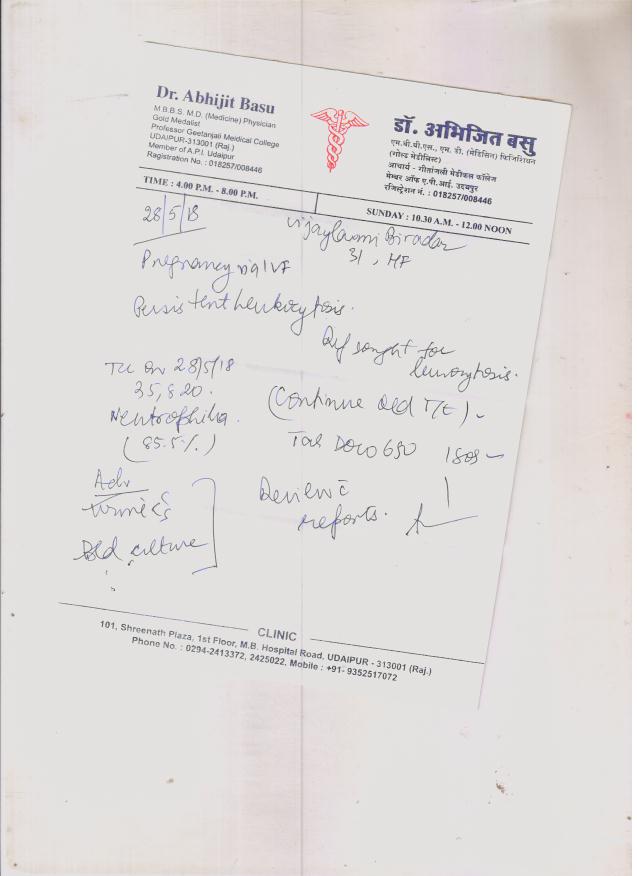 Dr. Abhijit Basu
M.B.B.S. M.D. (Medicine) Physician
Gold Medalist
Professor Geetanjali Meidical College
UDAIPUR-313001 (Raj.)
Member of A.P.I. Udaipur
Registration No. : 018257/008446
डॉ. अभिजित बसु
एम.बी.बी.एस., एम. डी. (मेडिसिन) फिजिशियन
(गोल्ड मेडीलिस्ट)
आचार्य - गीतांजली मेडीकल कॉलेज
मेम्बर ऑफ ए.पी.आई. उदयपुर
रजिस्ट्रेशन नं. : 018257/008446
TIME : 4.00 P.M. - 8.00 P.M.
SUNDAY : 10.30 A.M. - 12.00 NOON
28/5/18
Vijaylaxmi Biradar
31, HF
Pregnancy IVF
Persistent Leukocytosis.
Ref sought for
leucocytosis.
TLC on 28/5/18
35,820.
Neutrophilia.
(85.5%)
(Continue old T/t)
Tab Dolo 650 1 SOS
Adv
Urine C/S
Bld culture
Review c̄
reports.
CLINIC
101, Shreenath Plaza, 1st Floor, M.B. Hospital Road, UDAIPUR - 313001 (Raj.)
Phone No. : 0294-2413372, 2425022, Mobile : +91- 9352517072